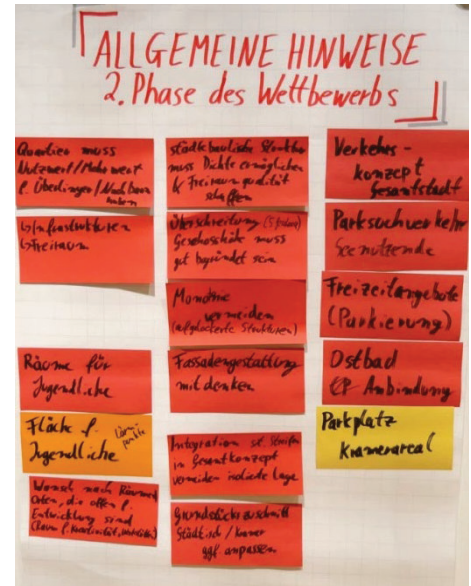 ALLGEMEINE HINWEISE
2. Phase des Wettbewerbs
Quartier muss
Nutzwert/Mehrwert
f. Überlinger/Nachbarn
haben
Infrastrukturen
Freiraum
Räume für
Jugendliche
Fläche f.
Jugendliche
Wunsch nach Räumen/
Orten, die offen f.
Entwicklung sind
(Raum f. Kreativität,
städtebauliche Struktur
muss Dichte ermöglichen
& Freiraumqualität
schaffen
Überschreitung
Geschosshöhe muss
gut begründet sein
Monotonie
vermeiden
(aufgelockerte Strukturen)
Fassadengestaltung
mitdenken
Integration st. Streifen
in Gesamtkonzept
vermeiden isolierte Lage
Grundstückszuschnitt
Städtisch/Kramer
ggf. anpassen
Verkehrs-
konzept
Gesamtstadt
Parksuchverkehr
Seenutzende
Freizeitangebote
(Parkierung)
Ostbad
Anbindung
Parkplatz
Kramerareal